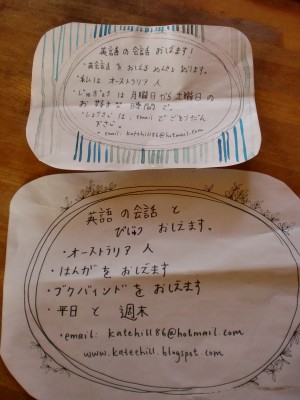 英語の会話 おしえます!
・英会話をおしえるめんきょあります。
・私は オーストラリア人
・じゅぎょうは 月曜日から土曜日の
お好きな時間で。
・しょうさいは、email でごそうだん
下さい。
・email: katehill86@hotmail.com
英語の会話と
びじゅつ おしえます。
・オーストラリア人
・はんがをおしえます
・ブクバィンドをおしえます
・平日と週末
・email: katehill86@hotmail.com
www.kateehill.blogspot.com